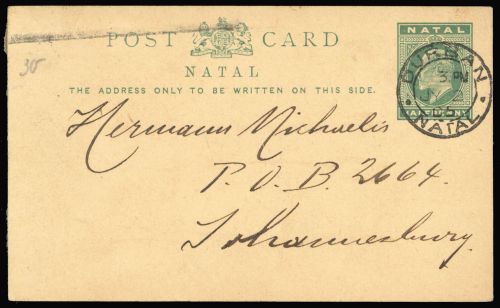 POST CARD
NATAL
THE ADDRESS ONLY TO BE WRITTEN ON THIS SIDE.
NATAL
HALFPENNY
DURBAN
NATAL
30
Hermann Michaelis
P. O. B. 2664.
Johannesburg.